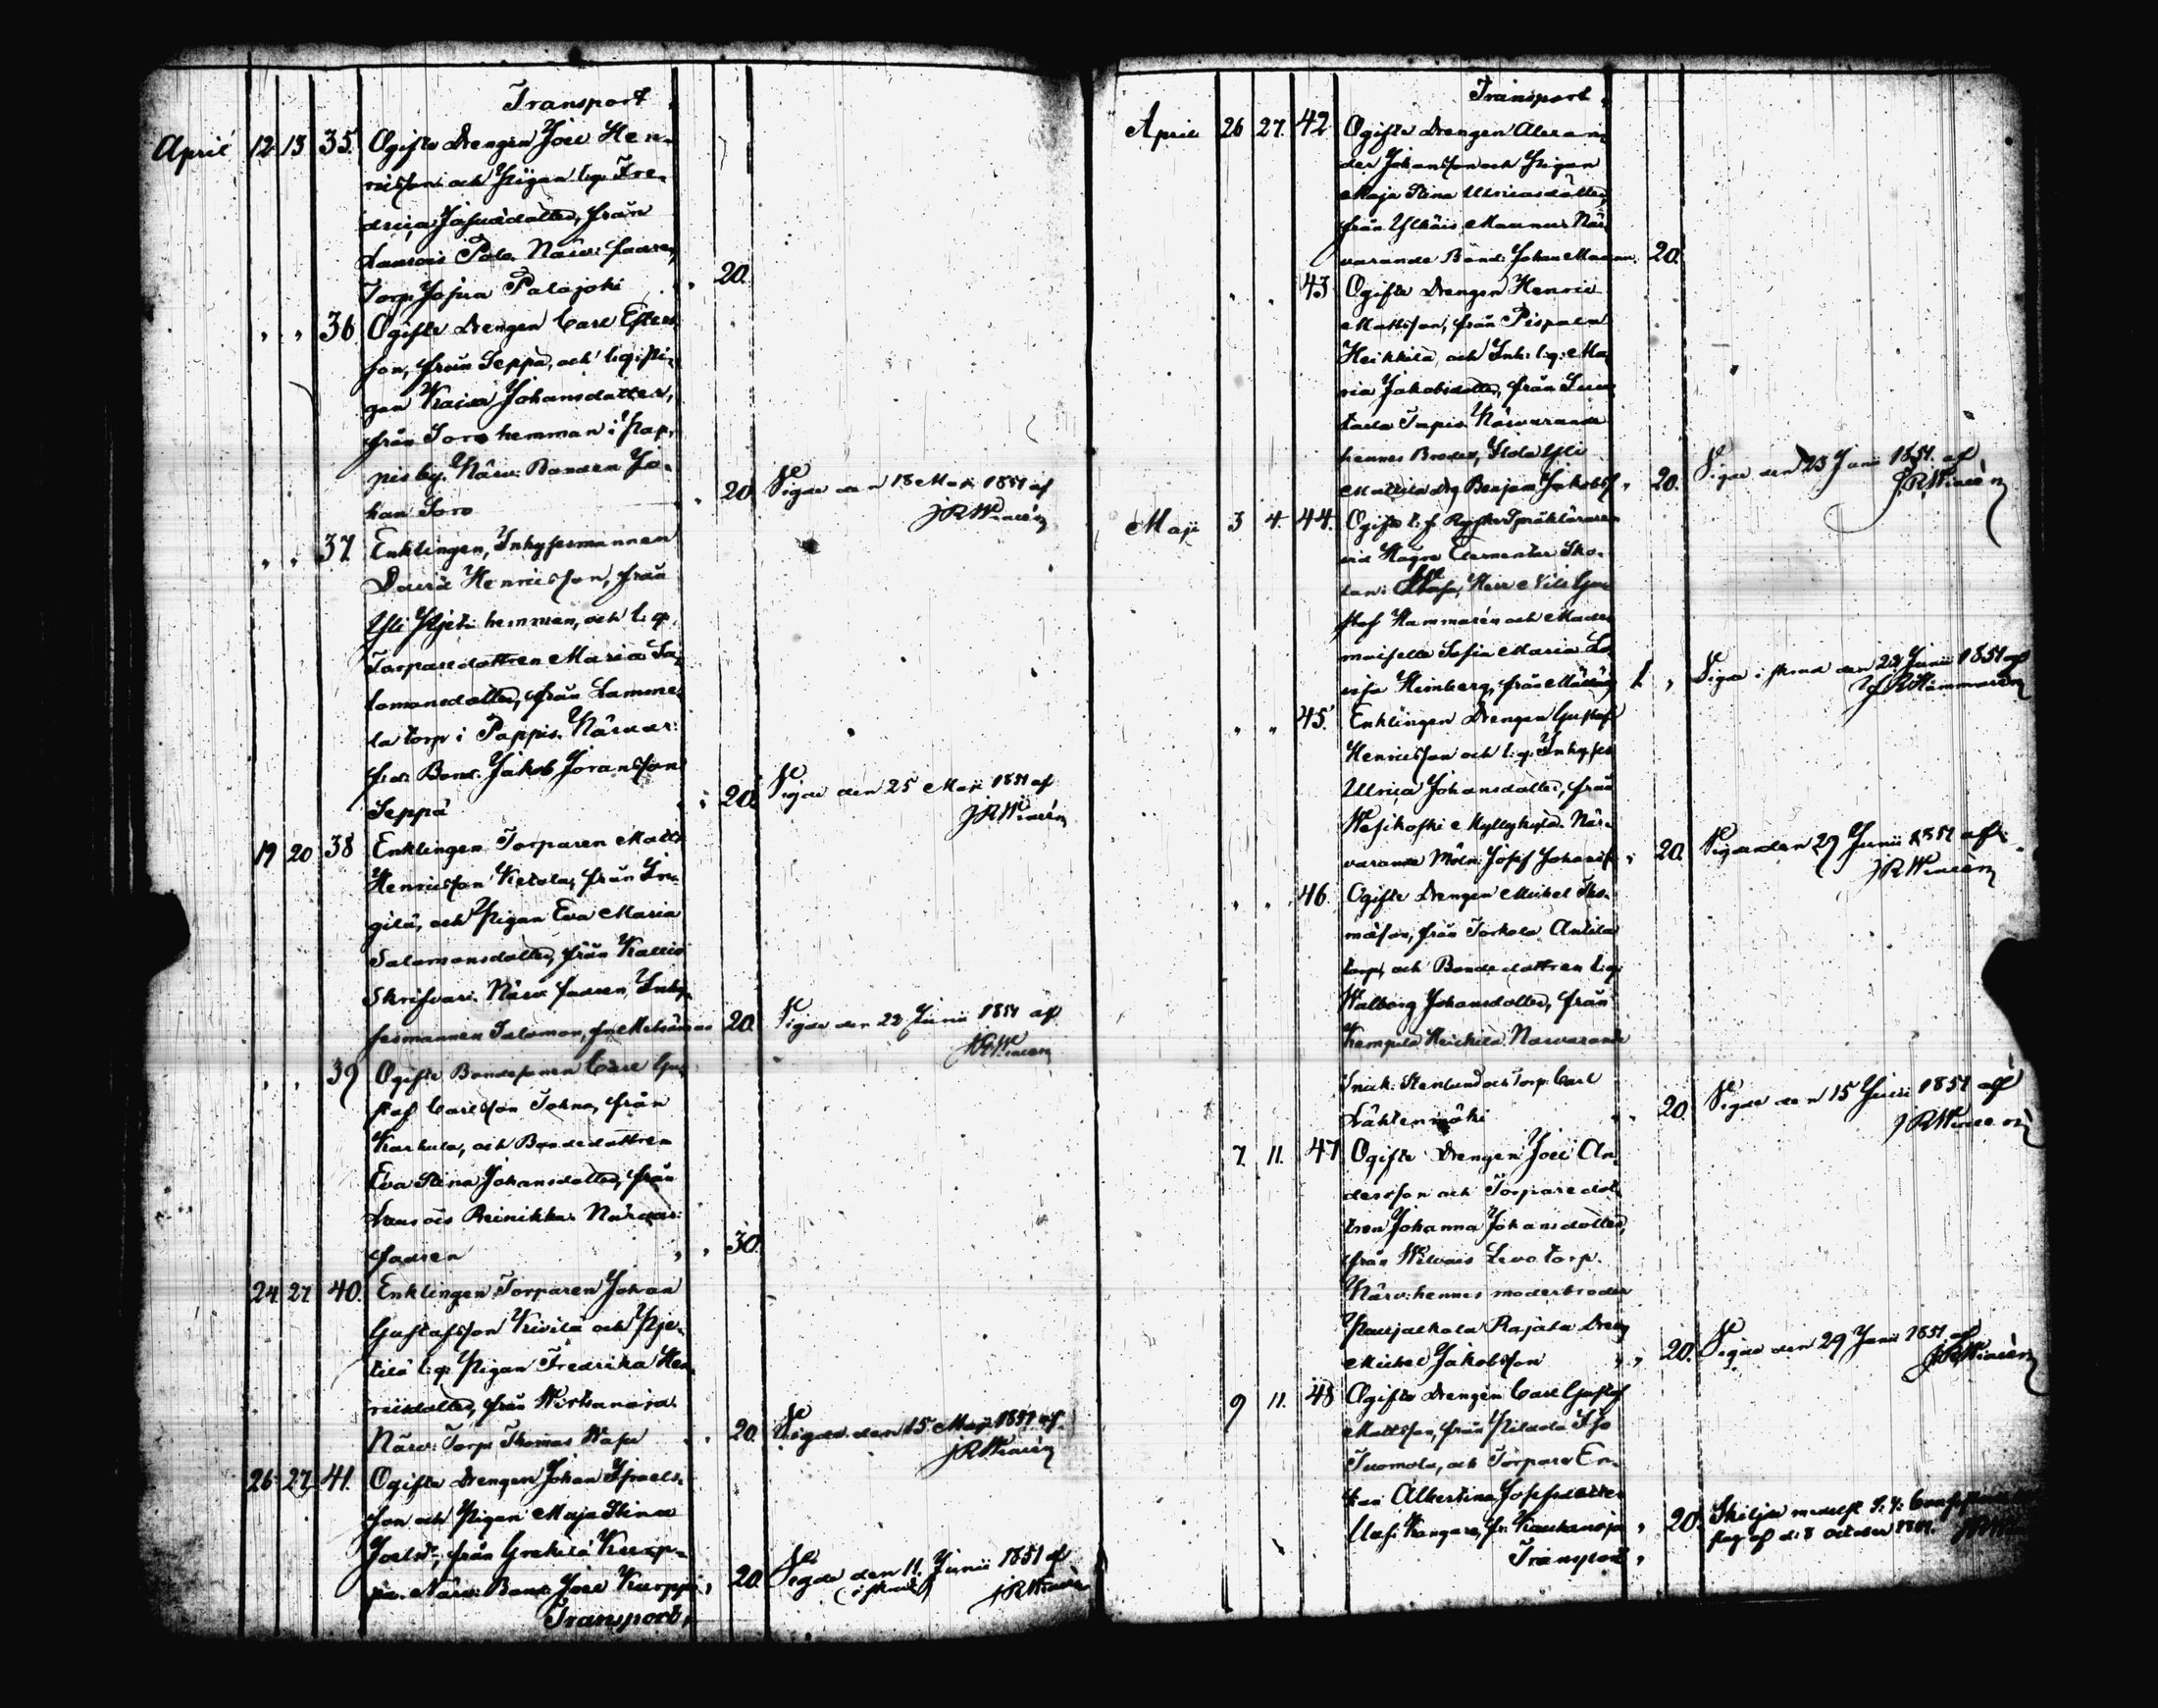 Transport
April 12 13 35. Ogifte Drengen Joel Hen-
ricsson och Pigan l:q. Fre-
drica Josuädotter, från
Palo. Närv: fadren,
Torp. Josua Palojoki " 20.
" " 36 Ogifte Drengen Carl
son, från Seppä, och l:q. Pi-
gan Kaisa Johansdotter,
från Soro hemman i Pap-
pis by. Närv: Bonden Jo-
han Soro " 20. Vigde den 18 Maji 1851 af
JRWinén
" " 37 Enklingen, Inhysesmannen
David Henricsson, från
Yli hemman, och l:q.
Torparedottren Maria Sa-
lomonsdotter, från Lamme-
la torp i Pappis. Närvar:
f.d. Bond. Jakob Joransson
Seppä " 20. Vigde den 25 Maji 1851 af
JRWinén
19 20 38 Enklingen Torparen Matts
Henricsson Ketola, från In-
gilä, och Pigan Eva Maria
Salomonsdotter, från Kallio
Skrifvari. Närv. fadren, Inhy-
sesmannen Salomon, 20. Vigde den 22 Junii 1851 af
JRWinén
" " 39 Ogifte Bondesonen Carl Gu-
staf Carlsson från
Karhula, och Bondedottren
Eva Stina Johansdotter, från
Reinikka. Närvar:
fadren " " 30.
24 27 40. Enklingen Torparen Johan
Gustafsson Kivilä och
l:q. Pigan Fredrika Hen-
ricsdotter, från Wirtanoja
Närv: Torp. Thomas Wasu " 20. Vigde den 15 Maji 1851 af
JRWinén
26 27 41. Ogifte Drengen Johan Israels-
son och Pigan Maja Stina
Joelsd:r, från Grekilä Kurp-
pa. Närv: Bond. Joel Kurppa " 20. Vigde den 11. Junii 1851 af
JRWinén
Transport,
Transport,
April 26 27. 42 Ogifte Drengen Alexan-
der Johansson och Pigan
Maja Stina Ulricasdotter,
från Yläis Maunu. När-
varande Bond: Johan Maunu. 20.
" " 43 Ogifte Drengen Henric
Mattsson, från Pispala
Heikkilä, och Inh: l:q: Ma-
ria Jakobsdotter, från
Tapis. Närvarande
hennes Broder,
Mattila drg Benjam Jakobss. " 20. Vigde den 23 Junii 1851. af
JRWinén
Maji 3 4. 44. Ogifte t.f. Ryska Språkläraren
vid Högre Elementar Sko-
lan i Herr Nils Gu-
staf Hammarén och Made-
moiselle Sofia Maria Lo-
visa Heimberg, från 1. " Vigde i den 22 Junii 1851 af
Hammarén
" " 45. Enklingen Drengen Gustaf
Henricsson och l:q. Inhyses
Ulrica Johansdotter, från
Wesikoski Myllykylä. När-
varande Möln: Josef Johanss. " 20. Vigde den 29 Junii 1851 af
JRWinén
" " 46. Ogifte Drengen Michel Tho-
masson, från Torkola Anttila
torp, och Bondedottren l:q:
Walborg Johansdotter, från
Heikkilä. Närvarande
Stenlund och Torp: Carl
Lähtenmäki " 20. Vigde den 15 Junii 1851 af
JRWinén
7. 11. 47 Ogifte Drengen Joel An-
dersson och Torparedot-
tren Johanna Johansdotter,
från Wilvais Levo torp.
Närv: hennes moderbroder
Rajala Dreng
Michel Jakobsson " " 20. Vigde den 29 Junii 1851 af
JRWinén
9 11. 48 Ogifte Drengen Carl Gustaf
Mattsson, från Pildola Iso
Tuomola, och Torpare En-
kan Albertina Josefsdotter
Kangare, fr. Kauhanoja " 20. Skiljde medelst
af d: 8 October 1851.
Transport,